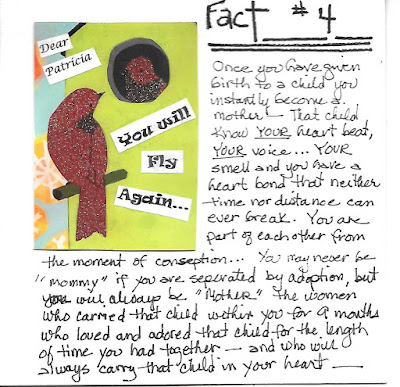 Dear
Patricia
You will
Fly
Again...
Fact #4
Once you have given
birth to a child you
instantly become a
mother! — That child
know YOUR heart beat,
YOUR voice... YOUR
smell and you have a
heart bond that neither
time nor distance can
ever break. You are
part of each other from
the moment of conseption... You may never be
"mommy" if you are seperated by adoption, but
you will always be "Mother" the women
who carried that child within you for 9 months
who loved and adored that child for the length
of time you had together — and who will
always carry that child in your heart —